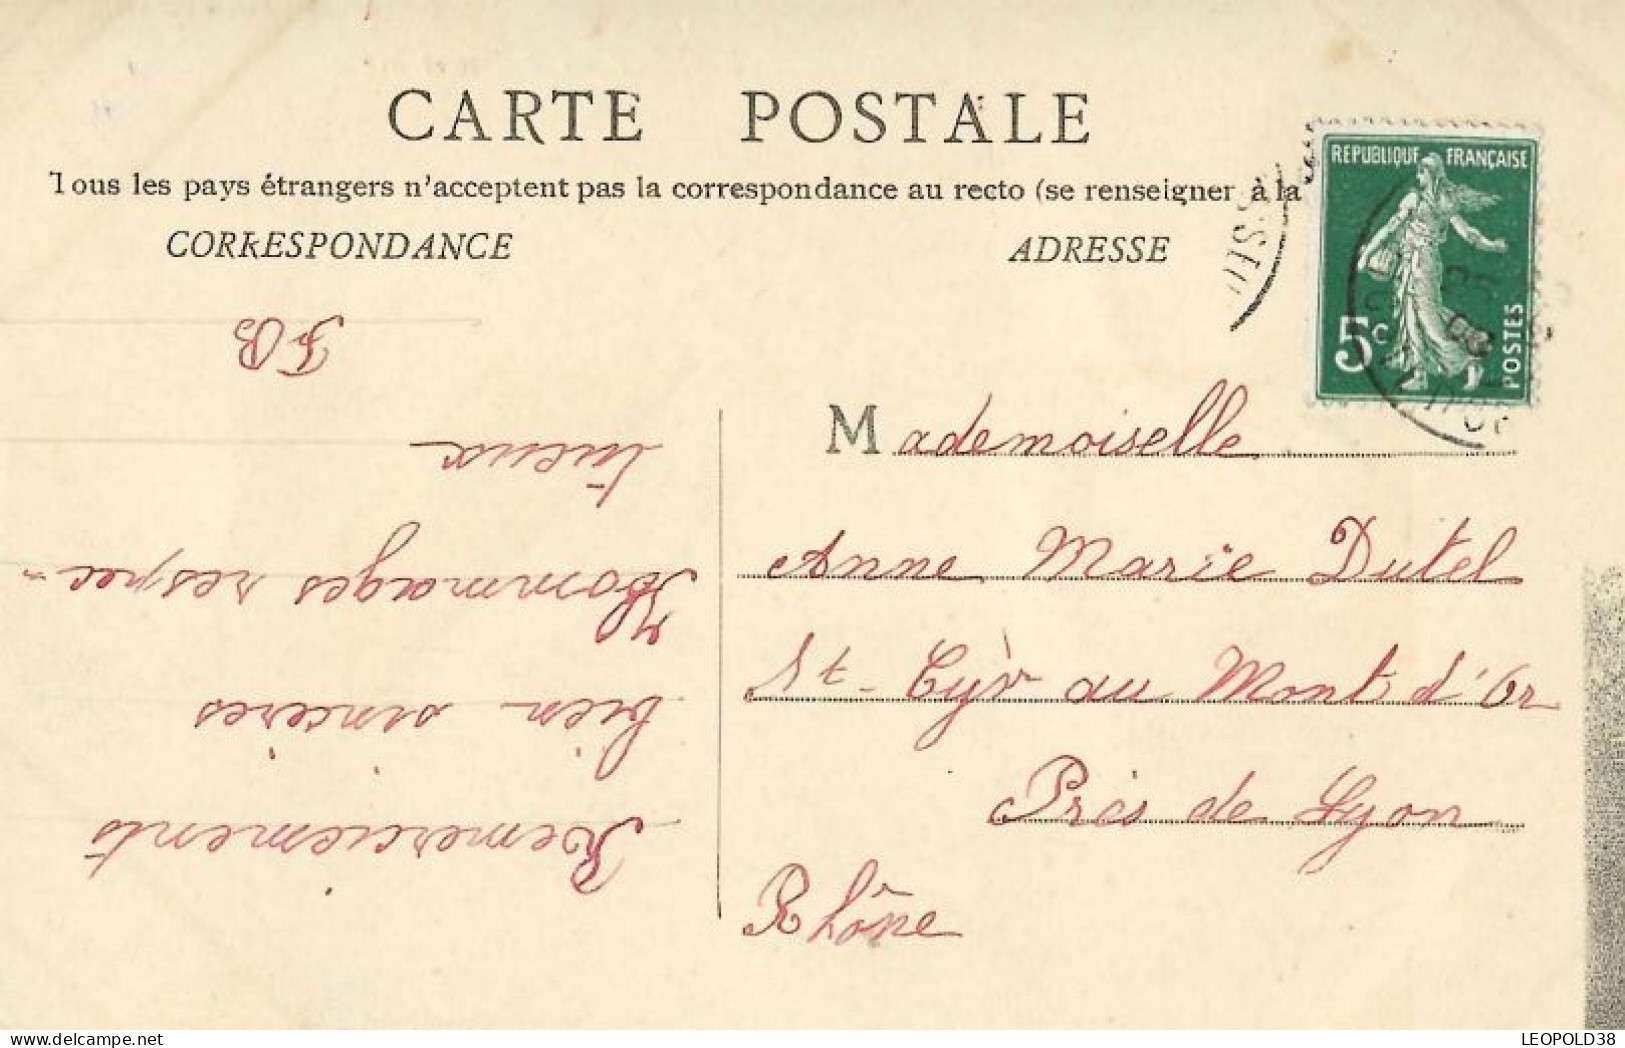 CARTE POSTALE
Tous les pays étrangers n'acceptent pas la correspondance au recto (se renseigner à la
CORRESPONDANCE
ADRESSE
REPUBLIQUE FRANÇAISE
5c
POSTES
Remerciements
bien sincères
Hommages respec-
tueux
FB
Mademoiselle
Anne Marie Dutel
St-Cyr au Mont d'Or
Près de Lyon
Rhône
LEOPOLD38